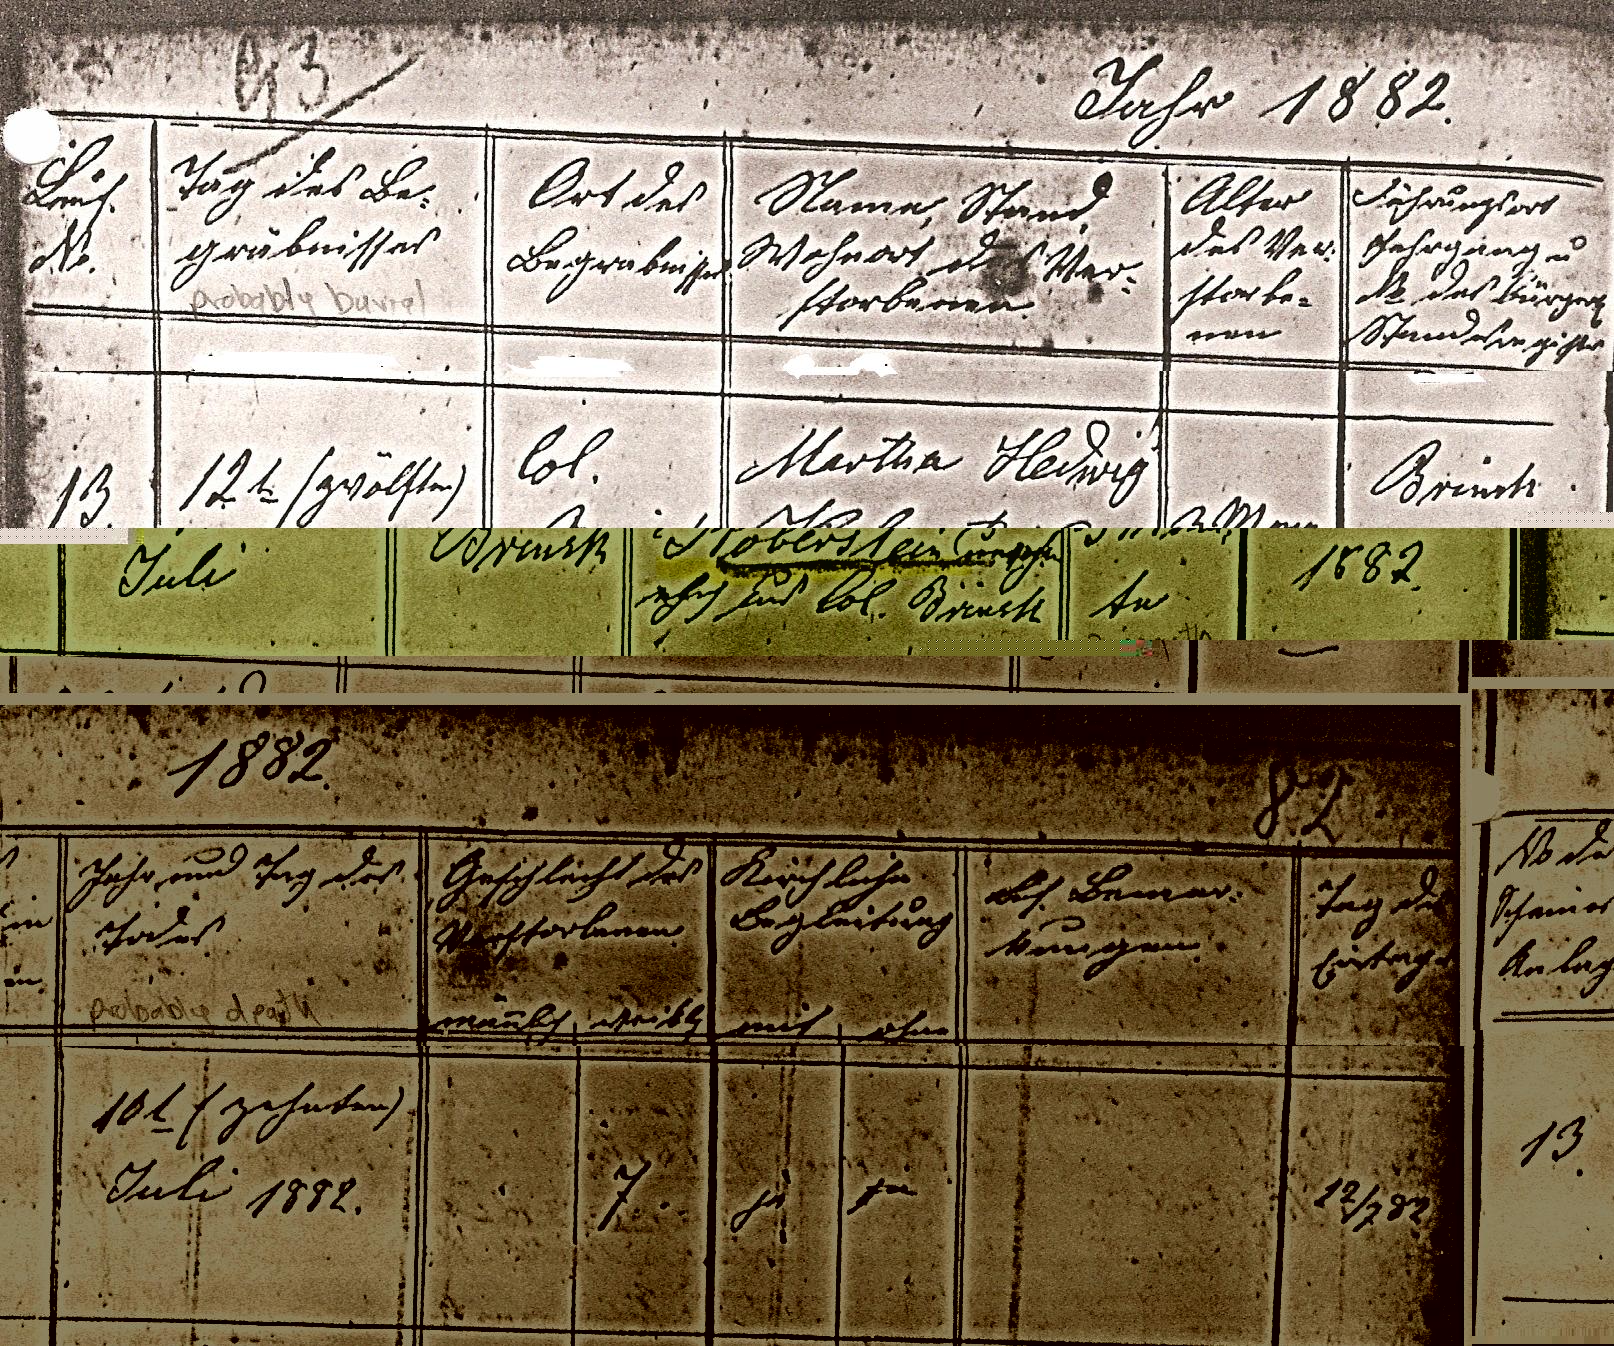 93
Jahr 1882.
Lauf. No.
Tag des Be-
gräbnisses
probably burial
Ort des
Begräbnisses
Name, Stand,
Wohnort des Ver-
storbenen
Alter
des Ver-
storbe-
nen
Jahrgang u
No des bürgerl
Standesregisters
13.
12t (zwölften)
Juli
Col.
Brinsk
Martha Hedwig
Koberstein
aus Col. Brinsk
3 Mona
te
Brinsk
1882
1882.
82
Jahr und Tag des
Todes
probably death
Geschlecht des
Verstorbenen
männlich weibl
Kirchliche
Begleitung
mit ohne
Bes. Bemer-
kungen
Tag der
No der
10t (zehnten)
Juli 1882.
7.
ja
12/7 82
13.